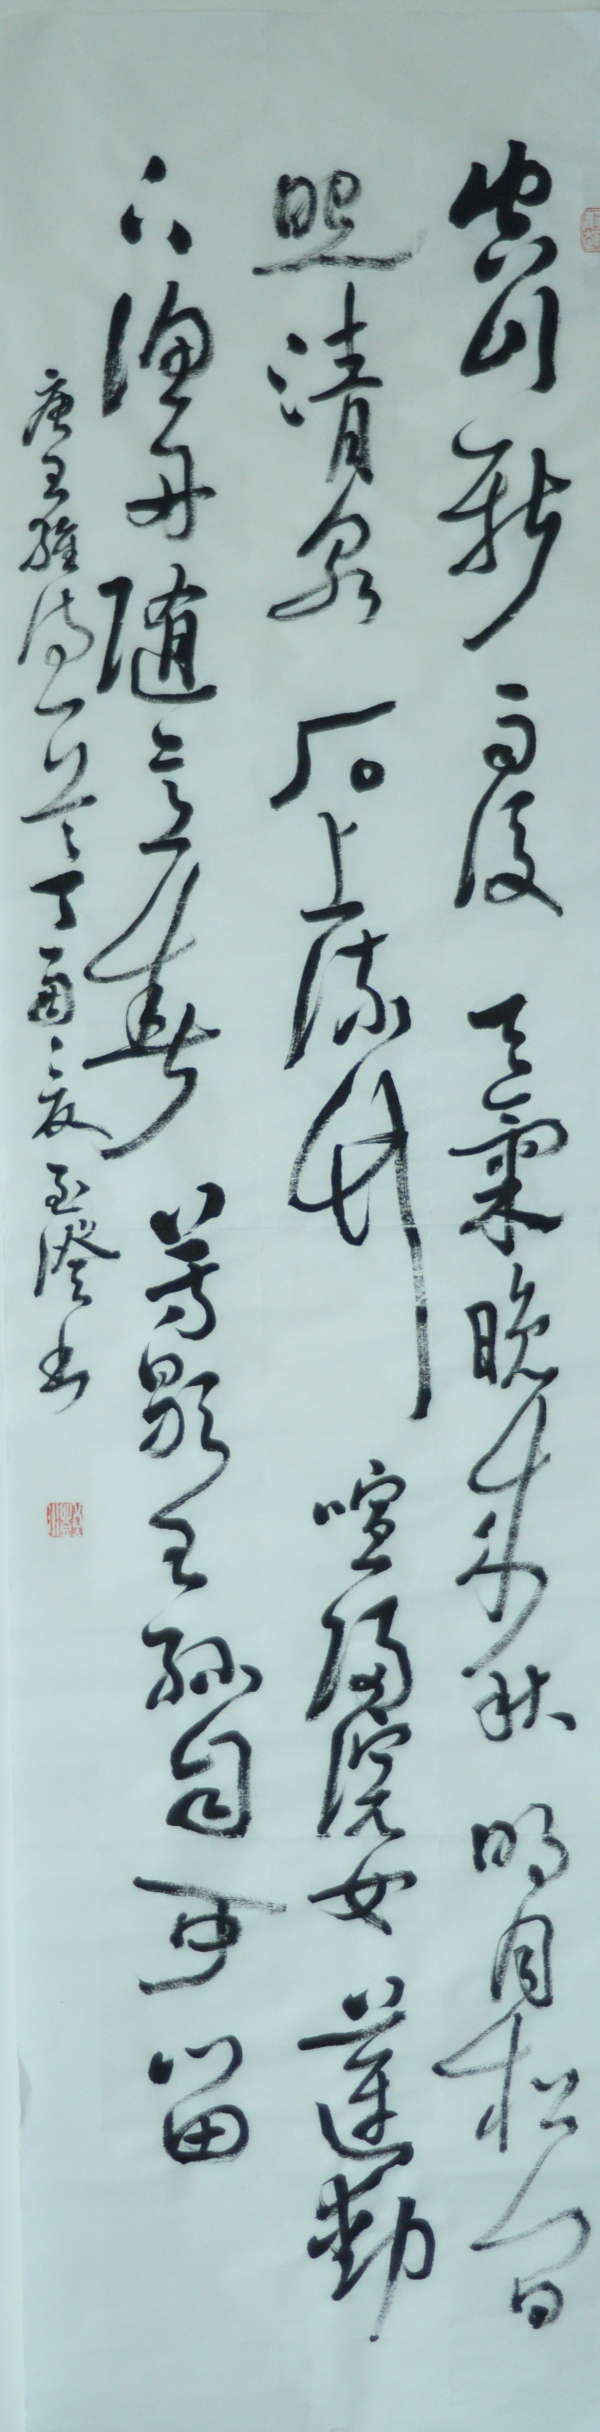 空山新雨後天氣晚來秋明月松間
照清泉石上流竹喧歸浣女蓮動
下漁舟隨意春芳歇王孫自可留
唐王維詩一首丁酉之夏澄书